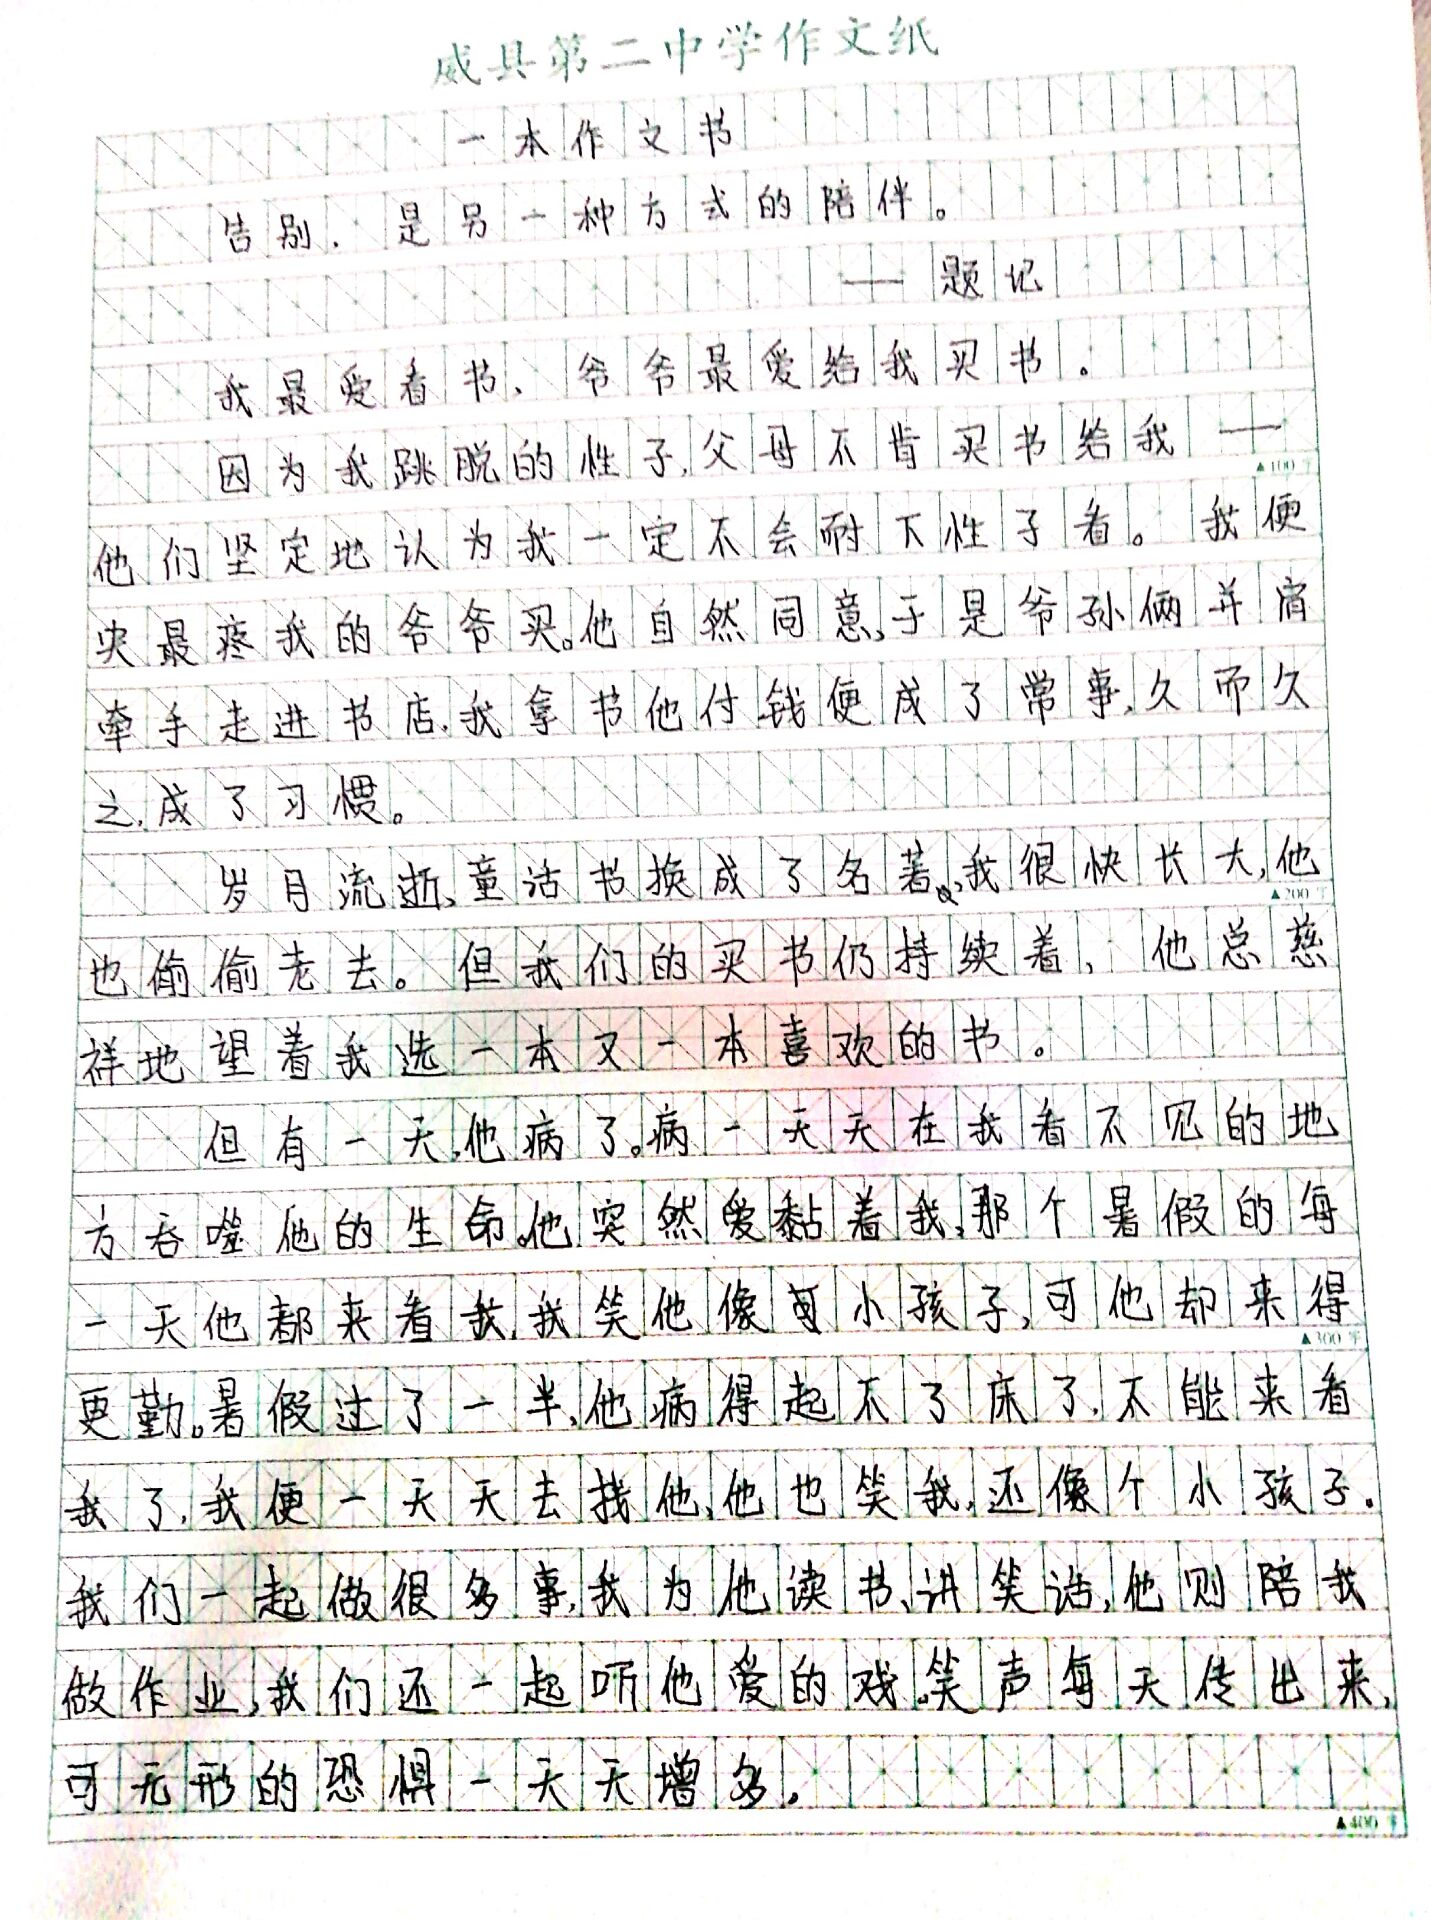 威县第二中学作文纸
一本作文书
告别,是另一种方式的陪伴。
——题记
我最爱看书,爷爷最爱给我买书。
因为我跳脱的性子,父母不肯买书给我——
▲100字
他们坚定地认为我一定不会耐下性子看。我便
央最疼我的爷爷买。他自然同意,于是爷孙俩并肩
牵手走进书店,我拿书他付钱便成了常事,久而久
之,成了习惯。
岁月流逝,童话书换成了名著,我很快长大,他
▲200字
也偷偷老去。但我们的买书仍持续着,他总慈
祥地望着我选一本又一本喜欢的书。
但有一天,他病了。病一天天在我看不见的地
方吞噬他的生命。他突然爱黏着我,那个暑假的每
一天他都来看我,我笑他像个小孩子,可他却来得
▲300字
更勤。暑假过了一半,他病得起不了床了,不能来看
我了,我便一天天去找他,他也笑我,还像个小孩子。
我们一起做很多事,我为他读书、讲笑话,他则陪我
做作业,我们还一起听他爱的戏。笑声每天传出来,
可无形的恐惧一天天增多。
▲400字